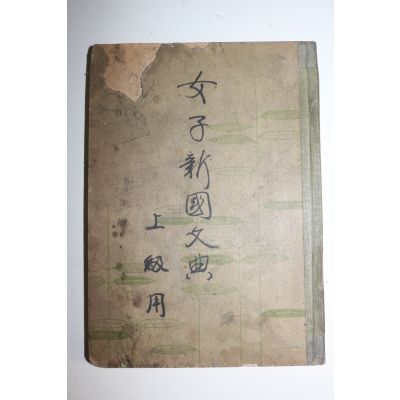 女子新國文典
上級用